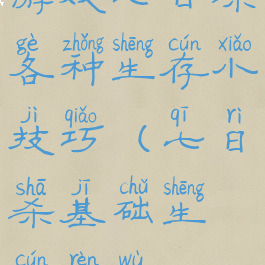 gè zhǒng shēng cún xiǎo
各种生存小
jì qiǎo qī rì
技巧（七日
shā jī chǔ shēng
杀基础生
cún rèn wù